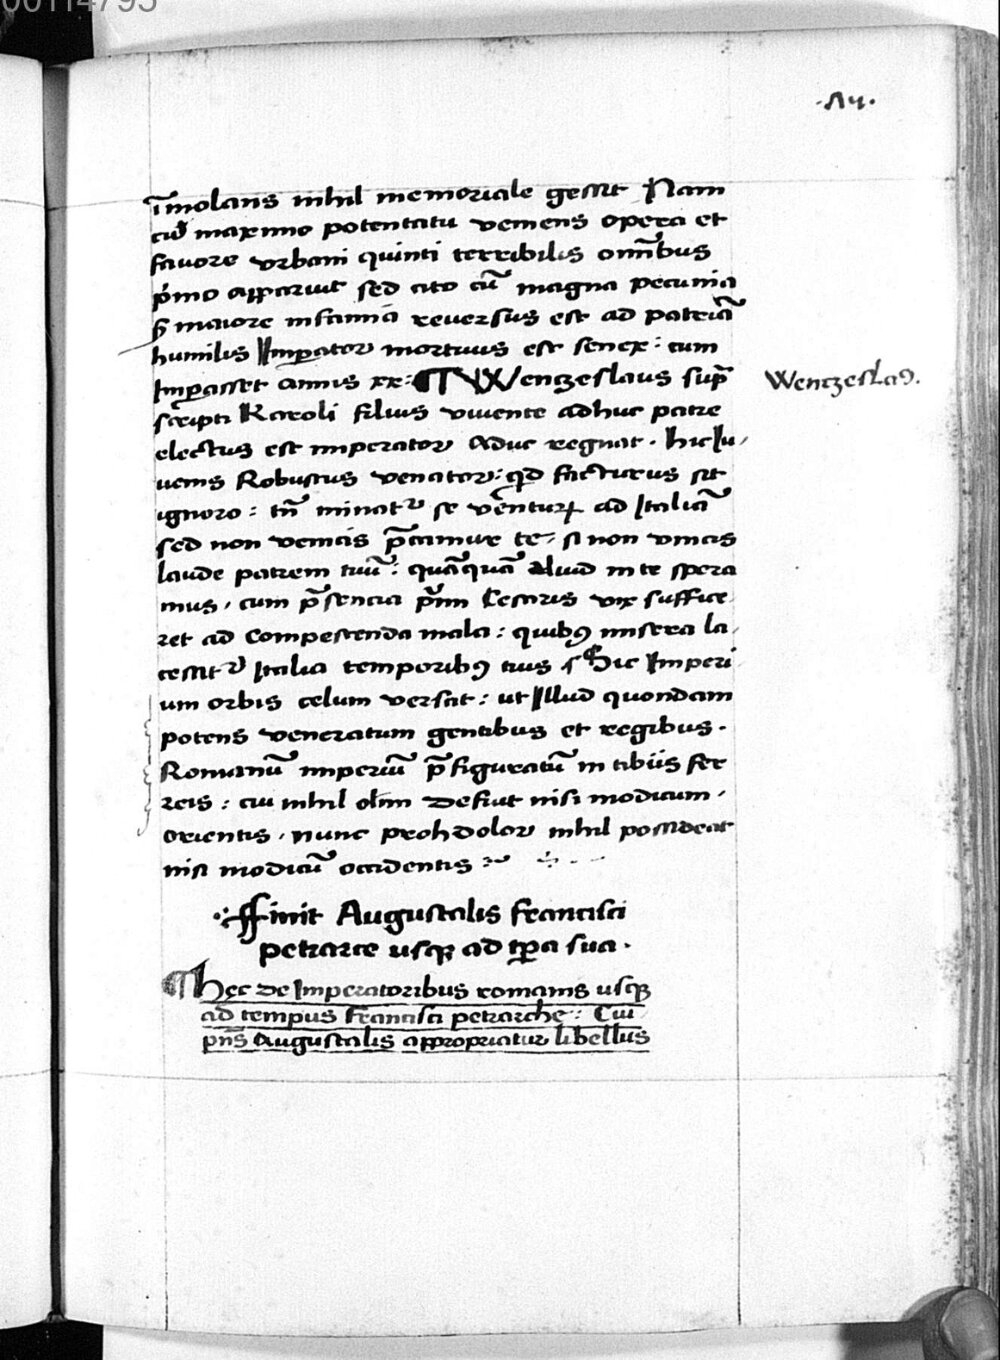 00114795
īmolans nihil memoriale gessit Nam
cu᷒ maximo potentatu veniens opera et
fauore vrbani quinti terribilis om̄ibus
p̓mo apparuit sed cito cū magna pecunia
s̄ maiore infamia reuersus est ad patriā
humilis Imperator mortuus est senex : cum
Imperasset annis xx : Wenzeslaus sup̄
scripti Karoli filius viuente adhuc patre
electus est imperator Aduc regnat . hic Iu/
uenis Robustus venator : qd facturus sit
ignoro : tn̄ minatr se venturꝝ ad Italiā
sed non venias p̄camur te / si non vincis
laude patrem tuū : quāquā aliud in te spera
mus . cum p̄sencia p̄mi Cesaris vix suffice
ret ad Compescenda mala : quibꝰ misera la/
cessitr Italia temporibꝰ tuis Sic Imperi
um orbis celum versat : ut Illud quondam
potens veneratum gentibus et regibus .
Romanū imperiū p̄figuratū in tibiis fer
reis : cui nihil olim defiut nisi modicum .
orientis . nunc prohdolor nihil possideat
nisi modicū occidentis
Finit Augustalis francisci
petrarce usq ad tpa sua .
Hęc de Imperatoribus romanis usq
ad tempus francisci petrarche : Cui
pn̄s Augustalis appropriatur libellus
Wentzeslaꝰ.